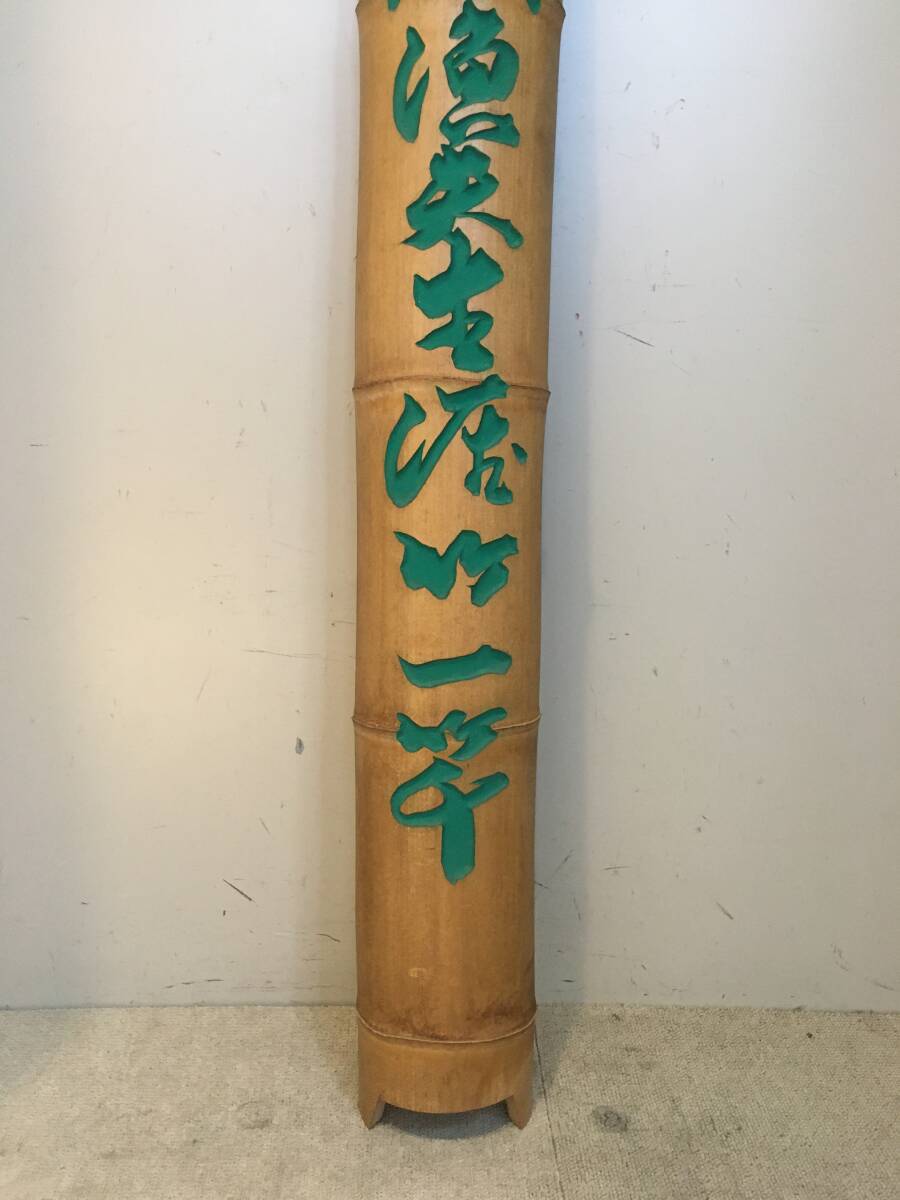 漁夫生涯竹一竿